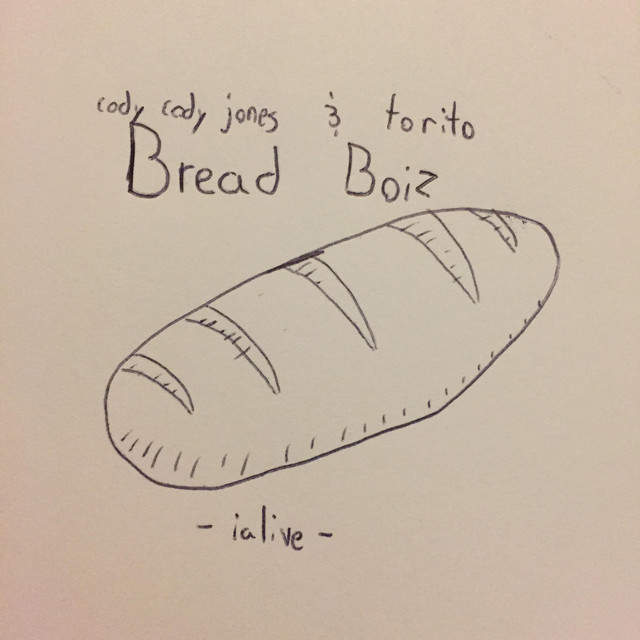 cody cody jones & torito
Bread Boiz
- ialive -